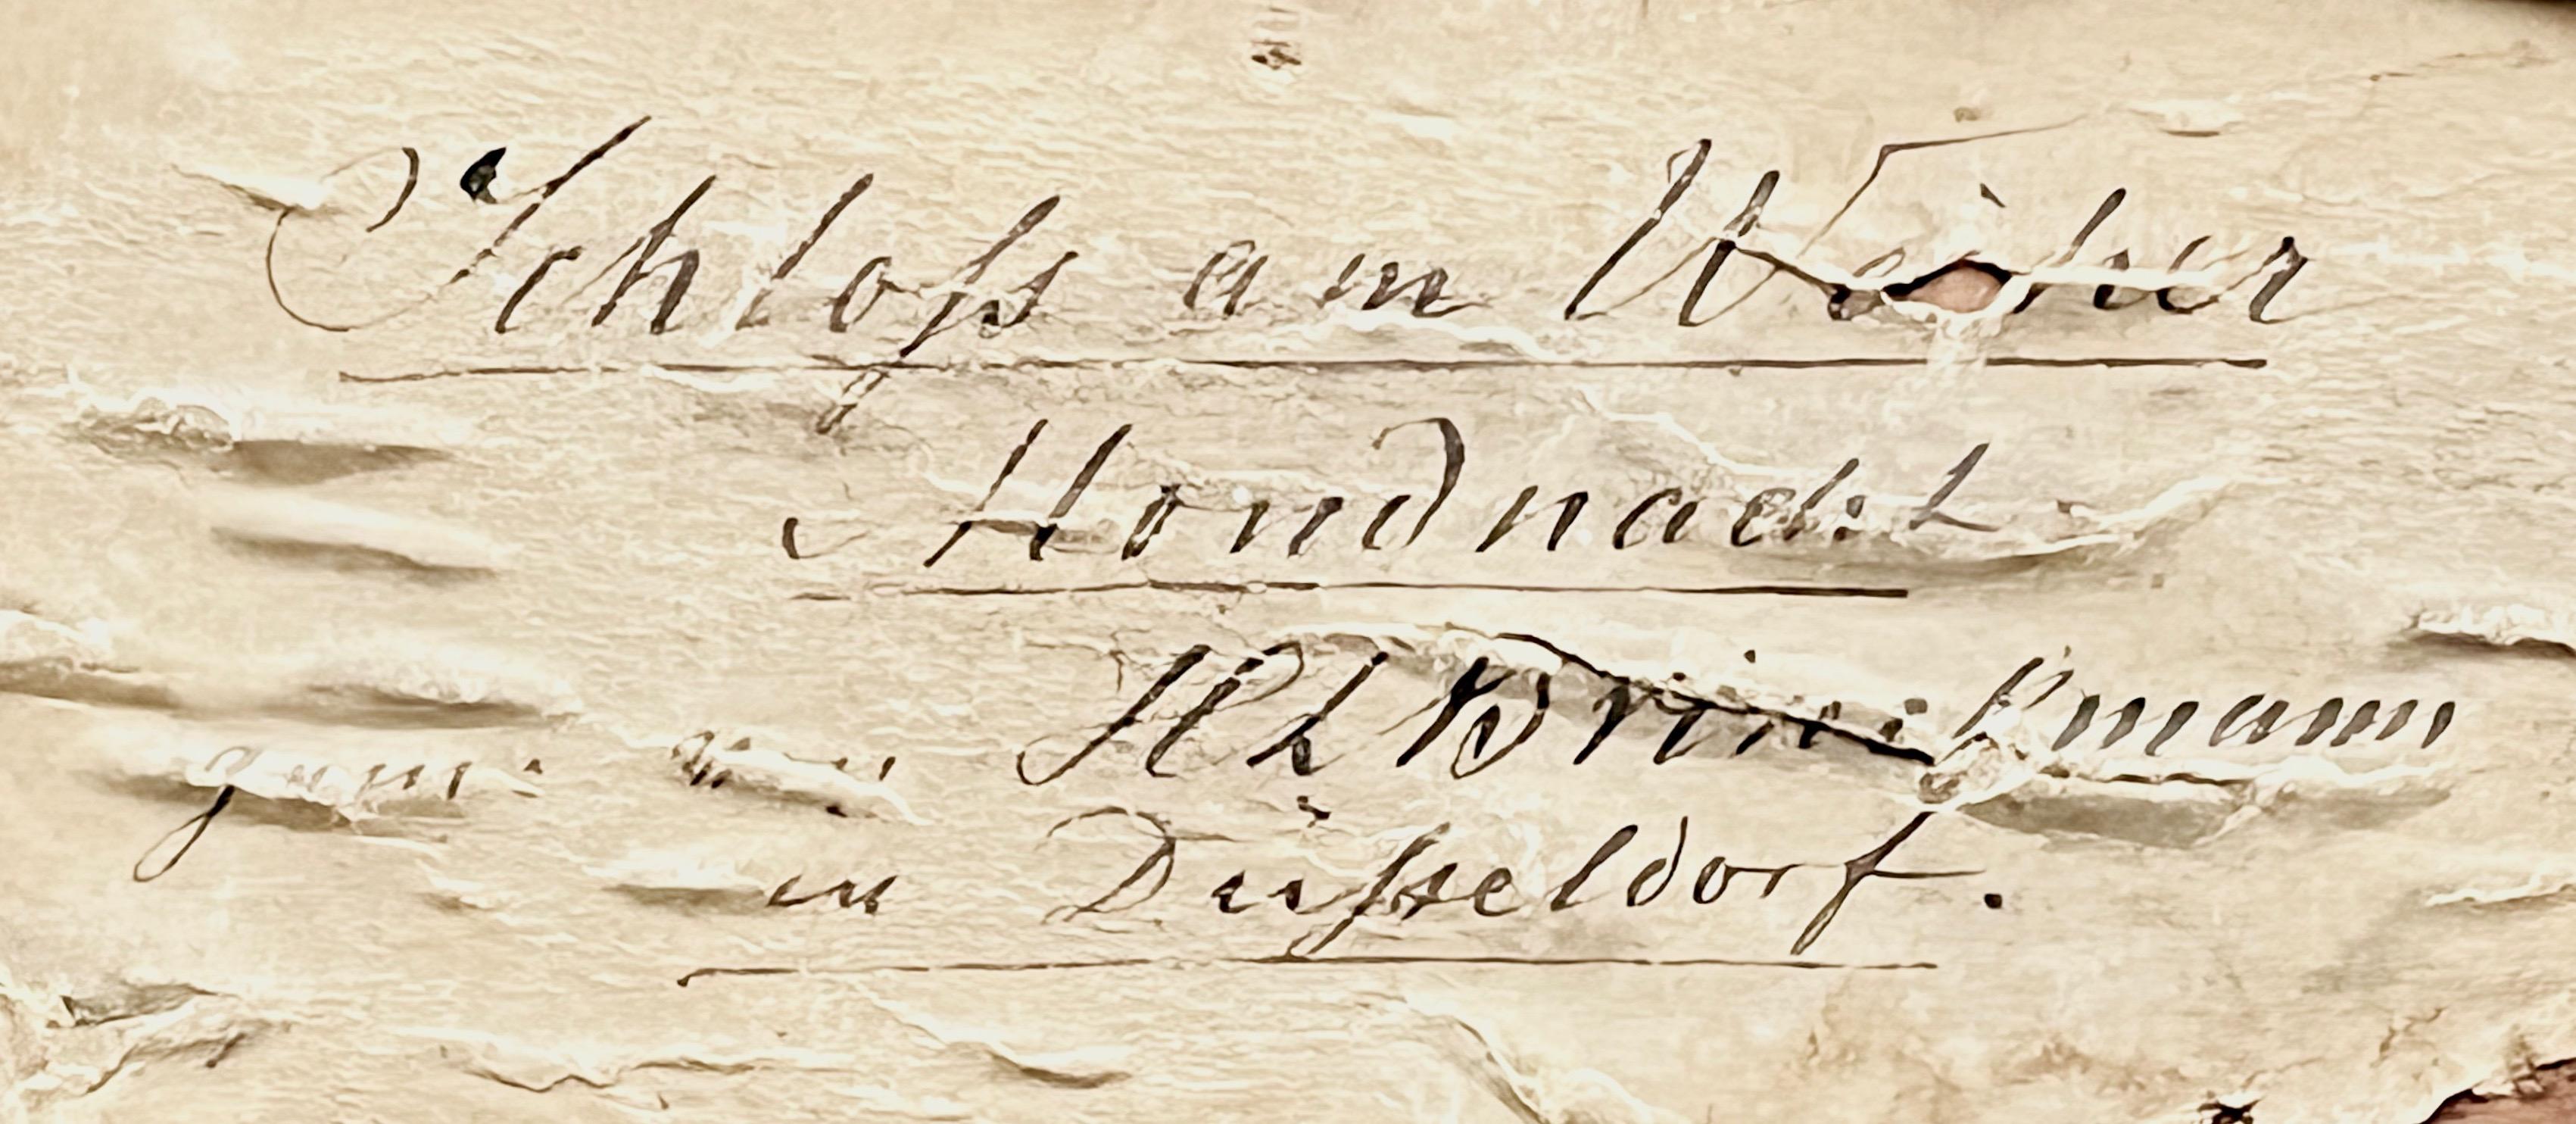 Schloß am Weiher
Mondnacht
gem. von Brinkmann
in Düsseldorf.